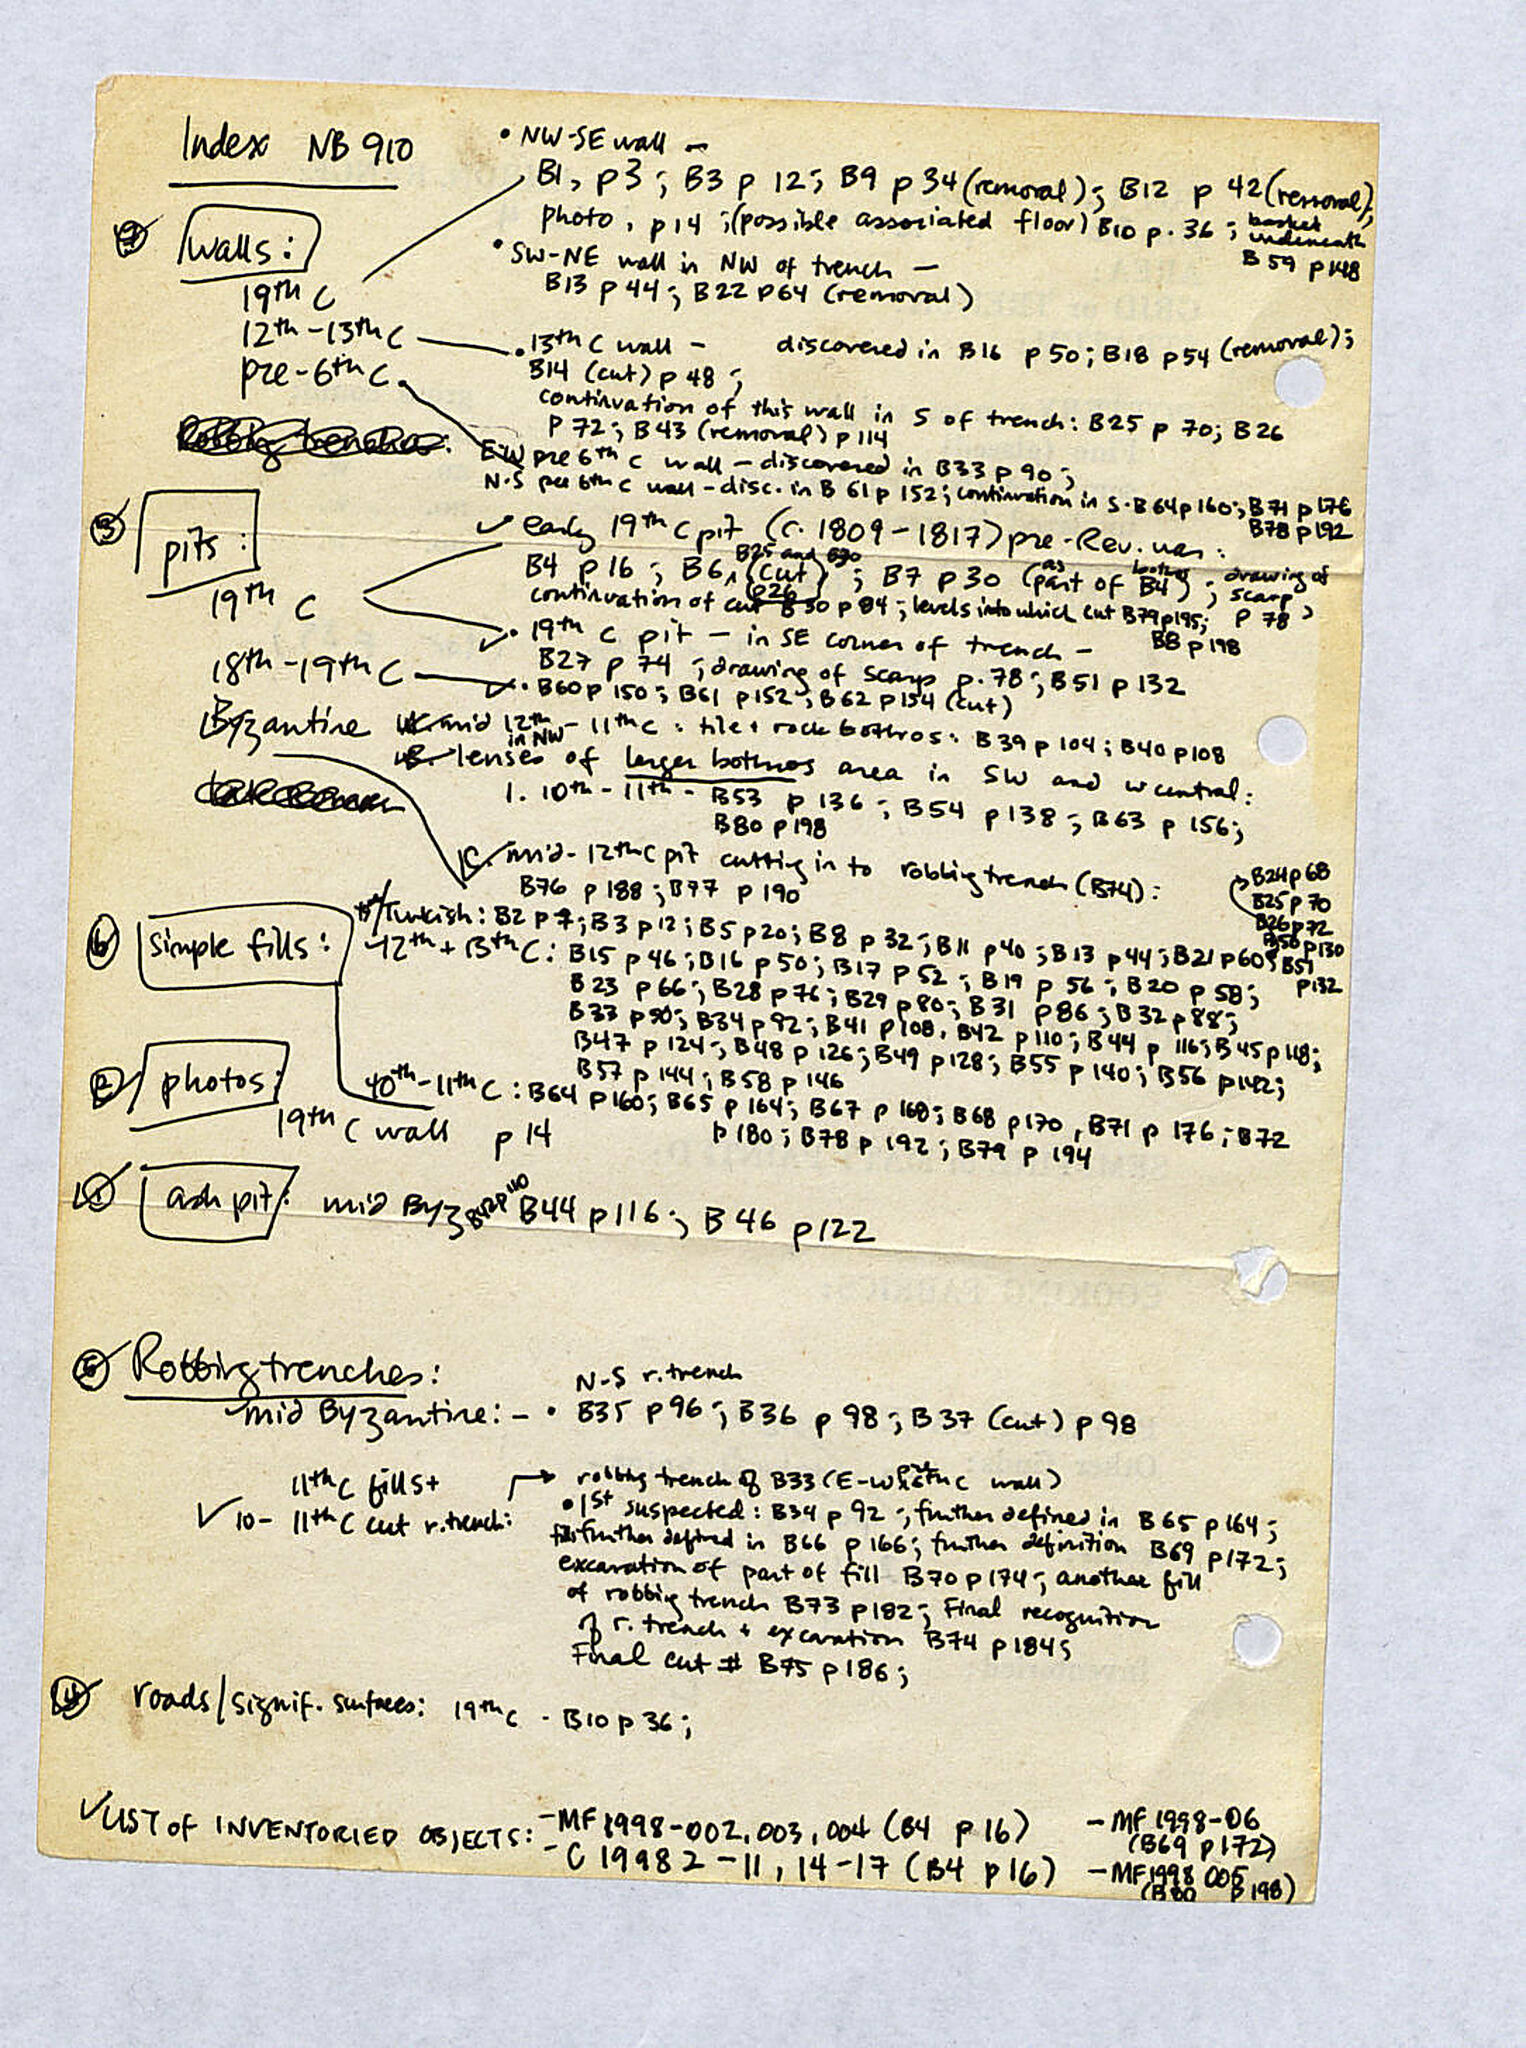 Index NB 910
• NW-SE wall –
B1, p3; B3 p 12; B9 p 34 (removal); B12 p 42 (removal);
photo, p14; (possible associated floor) B10 p. 36; basket underneath B59 p148
walls:
• SW-NE wall in NW of trench –
B13 p 44; B22 p64 (removal)
19th C
12th-13th C
• 13th C wall – discovered in B16 p 50; B18 p54 (removal);
B14 (cut) p 48;
pre-6th C
continuation of this wall in S of trench: B25 p 70; B26
p 72; B43 (removal) p114
Robbing trenches:
E-W pre 6th C wall – discovered in B33 p 90;
N-S pre 6th C wall – disc. in B 61 p 152; continuation in S. B64 p160; B71 p 176
B78 p192
3 pits:
early 19th C pit (c. 1809-1817) pre-Rev. war:
B4 p 16; B6 (cut) p26 B25 and B30; B7 p 30 (as part of bothros B4); drawing of scarp p 78,
continuation of cut B30 p 84; levels into which cut B79 p195;
B8 p 198
19th C
• 19th C pit – in SE corner of trench –
B27 p 74; drawing of scarp p. 78; B51 p 132
18th-19th C
• B60 p 150; B61 p152; B62 p154 (cut)
Byzantine
mid 12th - 11th C: tile + rock bothros: B39 p 104; B40 p108
in NW
B. lenses of larger bothros area in SW and w central:
1. 10th-11th – B53 p 136; B54 p 138; B63 p 156;
B80 p198
C. mid-12th C pit cutting in to robbing trench (B74):
B76 p 188; B77 p 190
B24 p 68
B25 p 70
B26 p 72
B50 p130
B51 p132
6 simple fills:
Turkish: B2 p 7; B3 p 12; B5 p20; B8 p 32; B11 p 40; B13 p 44; B21 p60;
12th + 13th C: B15 p 46; B16 p 50; B17 p 52; B19 p 56; B20 p 58;
B23 p 66; B28 p 76; B29 p 80; B31 p 86; B32 p 88;
B33 p 90; B34 p 92; B41 p 108, B42 p 110; B44 p 116; B45 p 118;
B47 p 124; B48 p 126; B49 p 128; B55 p 140; B56 p 142;
B57 p 144; B58 p 146
2 photos:
10th-11th C: B64 p 160; B65 p 164; B67 p 168; B68 p170, B71 p 176; B72
p 180; B78 p 192; B79 p 194
19th C wall p 14
1 ash pit: mid Byz B42 p 110 B44 p116; B 46 p122
5 Robbing trenches:
N-S r. trench
mid Byzantine: – • B35 p 96; B36 p 98; B37 (cut) p 98
11th C fills +
10-11th C cut r. trench:
robbing trench of B33 (E-W pre 6th C wall)
• 1st suspected: B34 p 92; further defined in B65 p164;
further defined in B66 p 166; further definition B69 p172;
excavation of part of fill B70 p174; another fill
of robbing trench B73 p182; Final recognition
of r. trench + excavation B74 p 184;
Final cut # B75 p 186;
4 roads/signif. surfaces: 19th C - B10 p 36;
LIST of INVENTORIED OBJECTS:
– MF 1998-002, 003, 004 (B4 p 16)
– C 1998 2-11, 14-17 (B4 p 16)
– MF 1998-06
(B69 p172)
– MF1998 005
(B80 p 198)